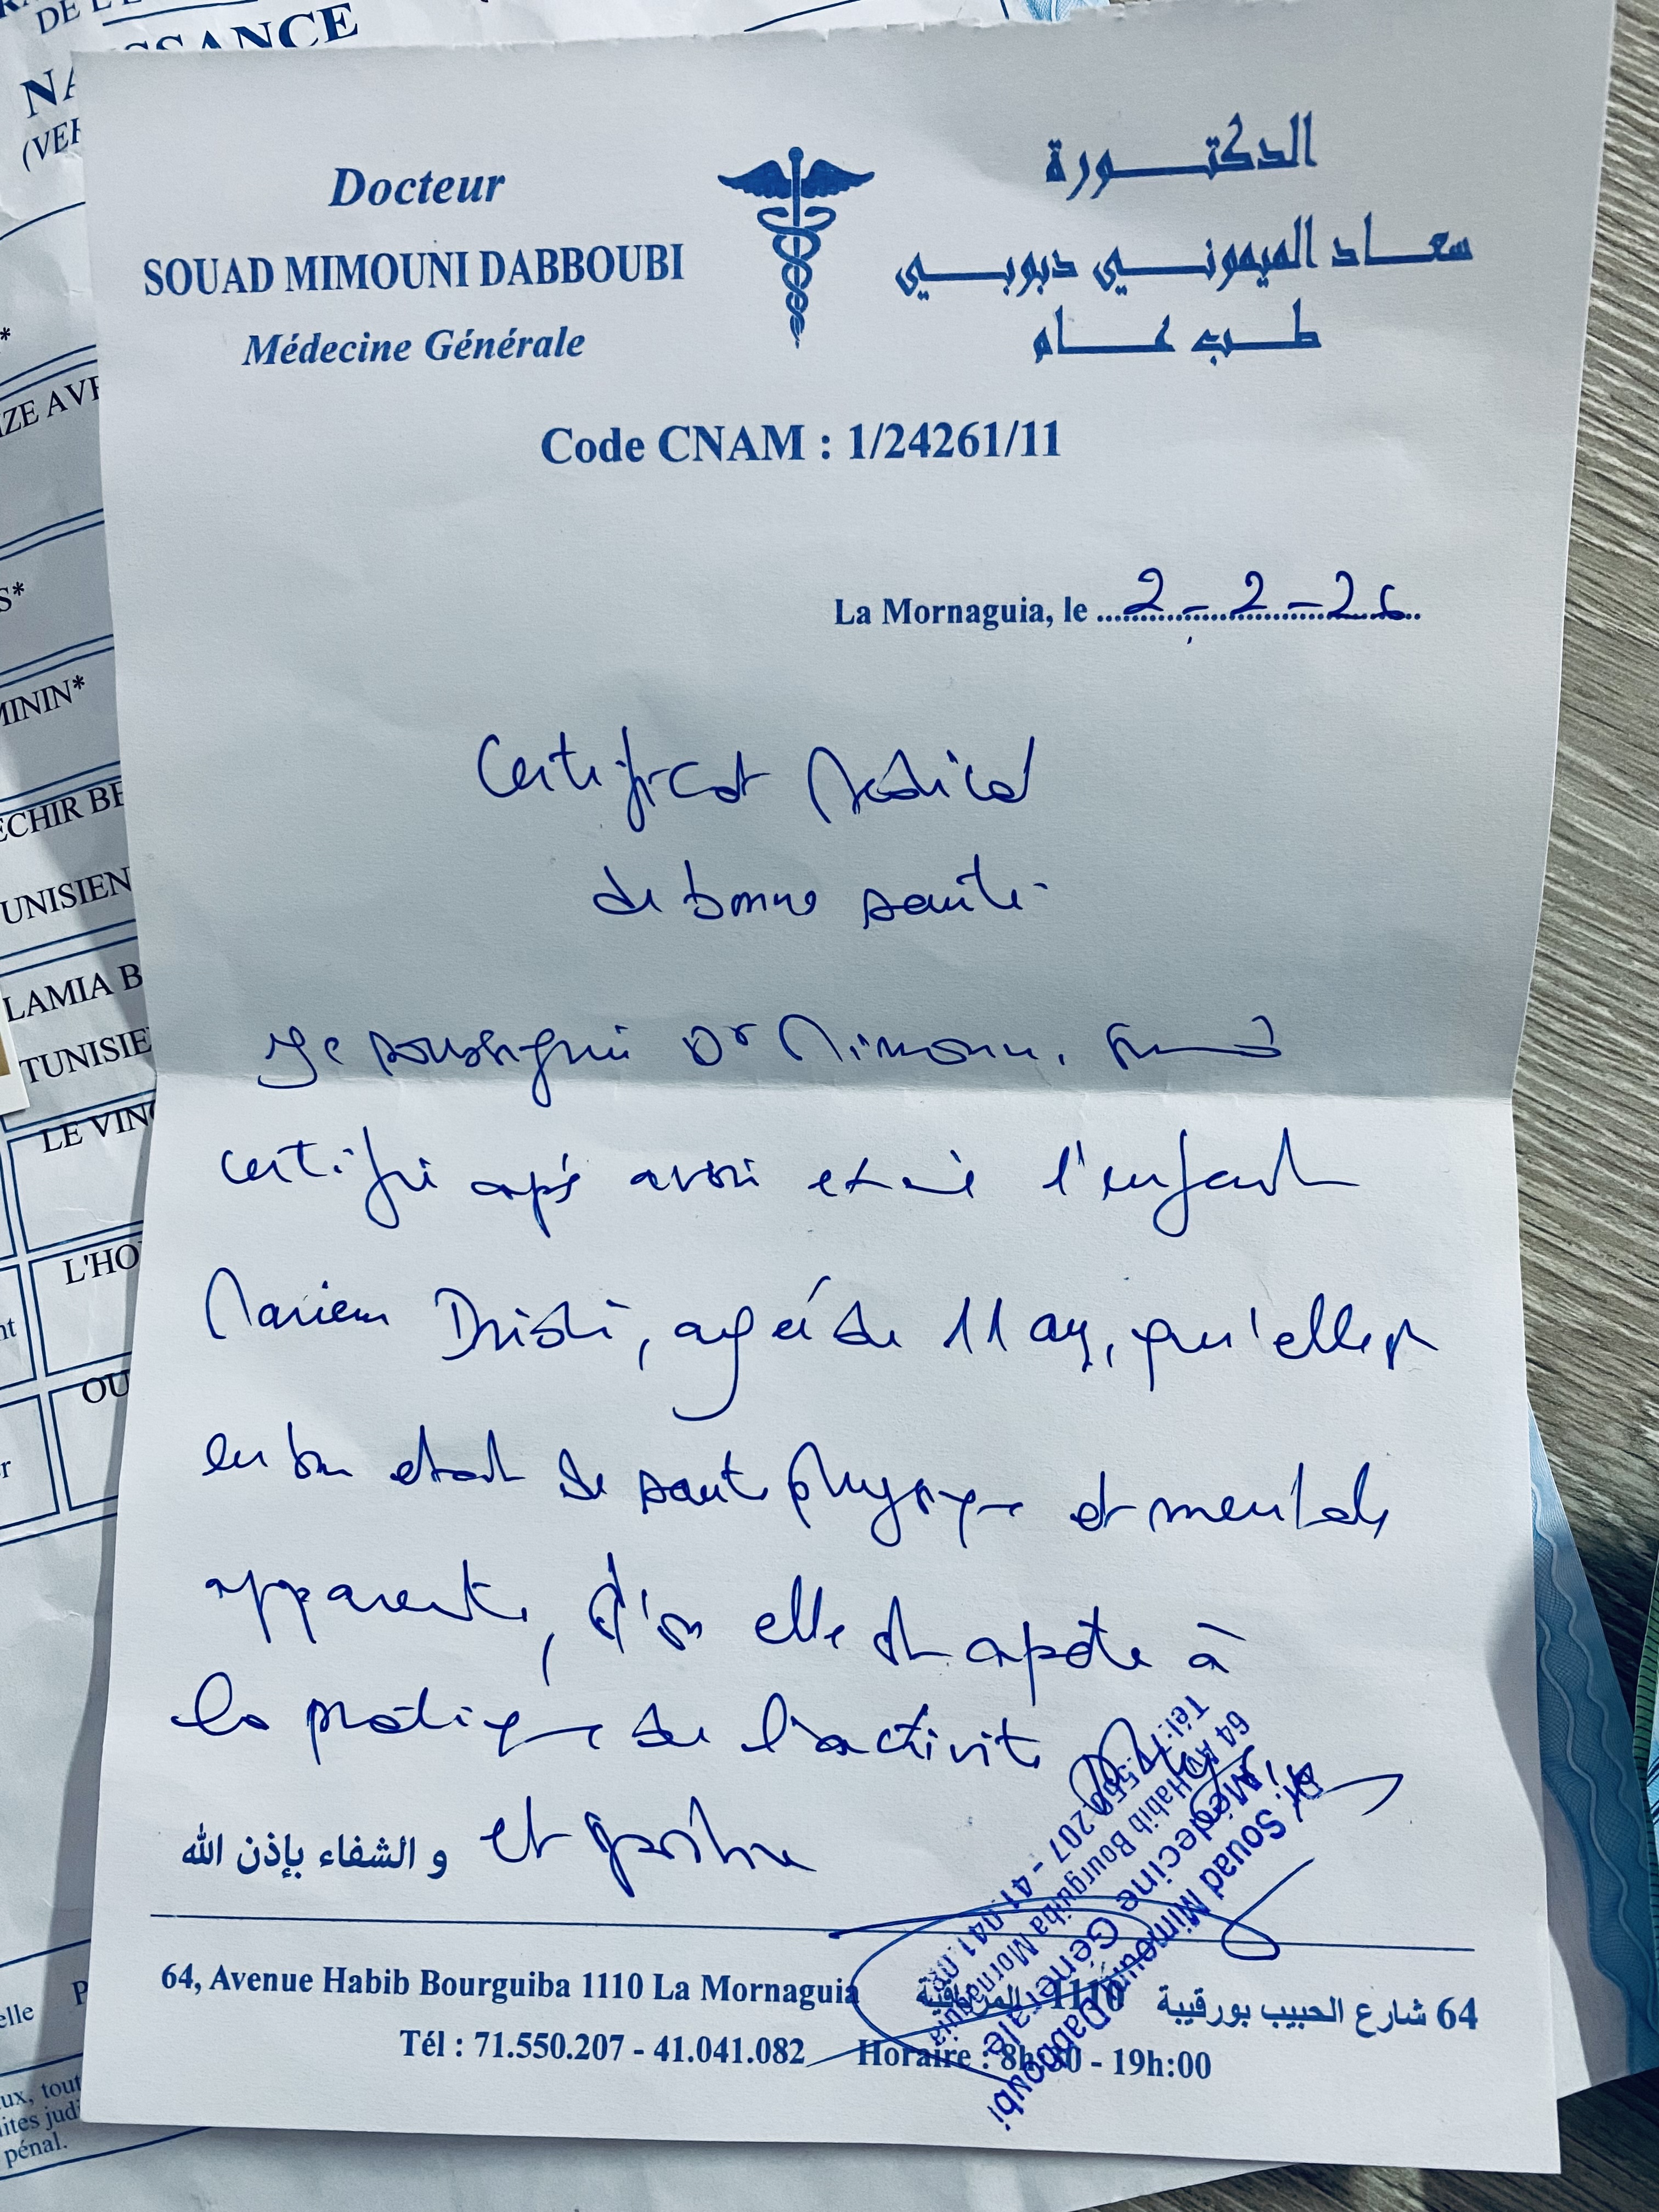 DE L'E
NAISSANCE
(VER
Docteur
SOUAD MIMOUNI DABBOUBI
Médecine Générale
الدكتورة
سعاد الميموني دبوبي
طب عام
Code CNAM : 1/24261/11
La Mornaguia, le 2-2-26
Certificat Médical
de bonne santé
Je soussigné Dr Mimouni Souad
certifie après avoir examiné l'enfant
Mariem Dridi, agée de 11 ans, qu'elle est
en bon état de santé physique et mentale
apparente, d'où elle est apte à
la pratique de l'activité
et sportive
و الشفاء بإذن الله
Dr. Souad Mimouni Dabboubi
Médecine Générale
64 Av. Habib Bourguiba Mornaguia
Tél: 71.550.207 - 41.041.082
64, Avenue Habib Bourguiba 1110 La Mornaguia
64 شارع الحبيب بورقيبة 1110 المرناقية
Tél : 71.550.207 - 41.041.082 Horaire : 8h:00 - 19h:00
ZE AVR
S*
MININ*
ECHIR BE
UNISIEN
LAMIA B
TUNISIE
LE VING
L'HO
OU
elle
ux, tout
ites judi
pénal.